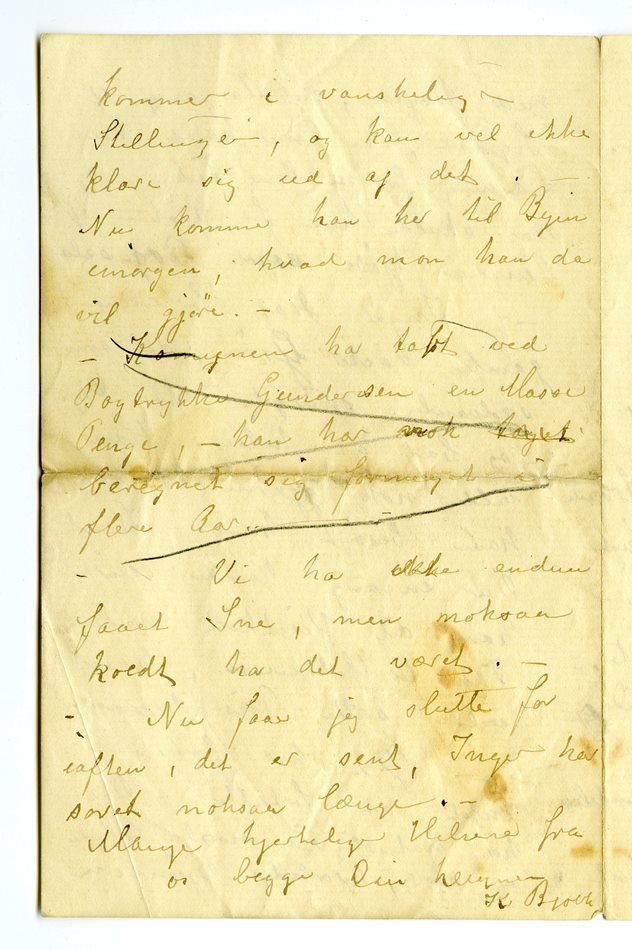 kommer i vanskelige
Stillinger, og kan vel ikke
klare sig ud af det. –
Nu komme han her til Byen
imorgen, hvad mon han da
vil gjöre. –
– Kompnen ha tabt ved
Bogtrykke Gundersen en Masse
Penge, – han har nok taget
beregnet sig formeget i
flere Aar.
– Vi ha ikke endnu
faaet Sne, men noksaa
koldt ha det været. –
– Nu faar jeg slutte for
iaften, det er sent, Inger har
sovet noksaa længe. –
Mange hjertelige Hilsene fra
os begge Din hengivne
K Bjoth